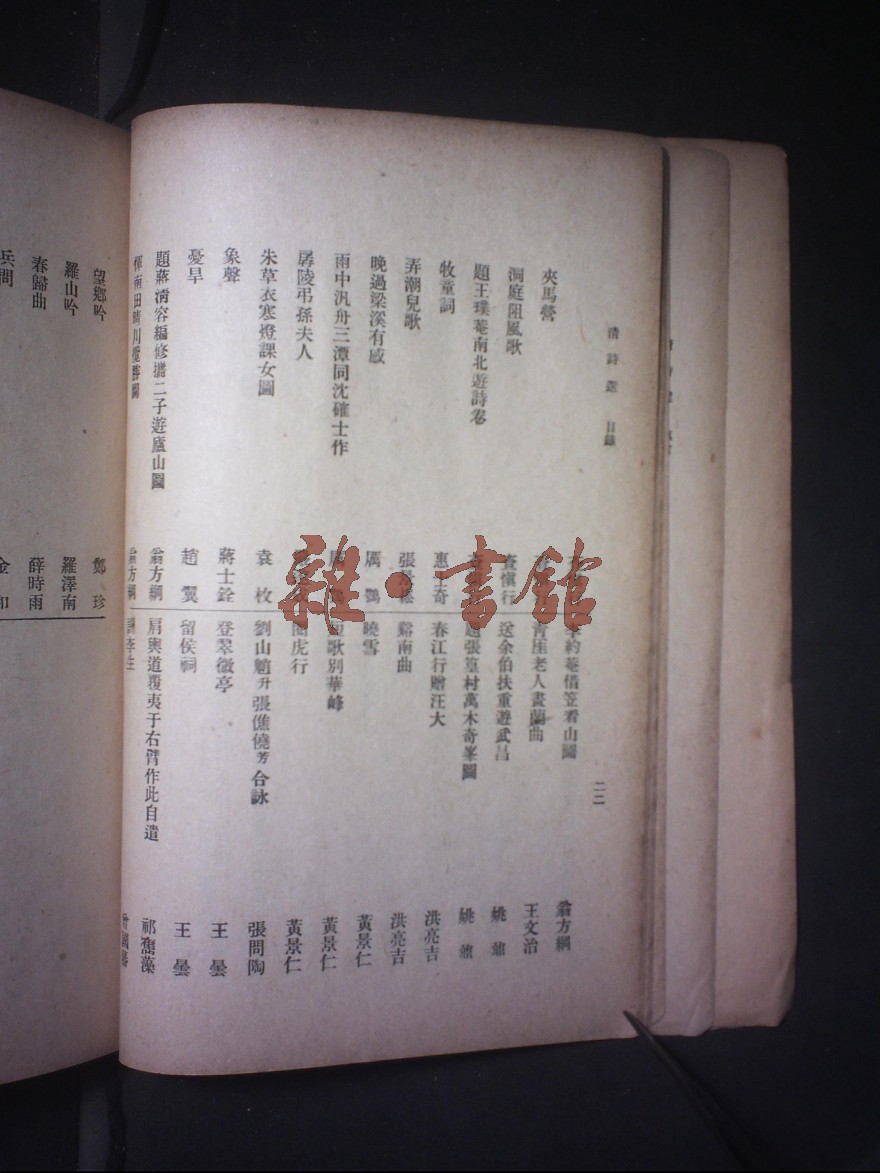 清詩選 目錄
二二
夾馬營
洞庭阻風歌 查愼行
題王璞菴南北遊詩卷
牧童詞 惠士奇
弄潮兒歌
晚過梁溪有感 厲鶚
雨中汎舟三潭同沈確士作
孱陵弔孫夫人
朱草衣寒燈課女圖 袁枚
象聲 蔣士銓
憂旱 趙翼
題蔣淸容編修攜二子遊廬山圖 翁方綱
翁方綱
李約菴借笠看山圖 翁方綱
青厓老人畫蘭曲 王文治
送余伯扶重遊武昌 姚鼐
題張篁村萬木奇峯圖 姚鼐
春江行贈汪大 洪亮吉
谿南曲 洪亮吉
曉雪 黃景仁
短歌別華峰 黃景仁
圈虎行 黃景仁
劉山魈升張僬僥芳合詠 張問陶
登翠微亭 王曇
留侯祠 王曇
肩輿道覆夷于右臂作此自遣 祁寯藻
曾國藩
望鄉吟 鄭珍
羅山吟 羅澤南
春歸曲 薛時雨
兵問 金和
雜·書館